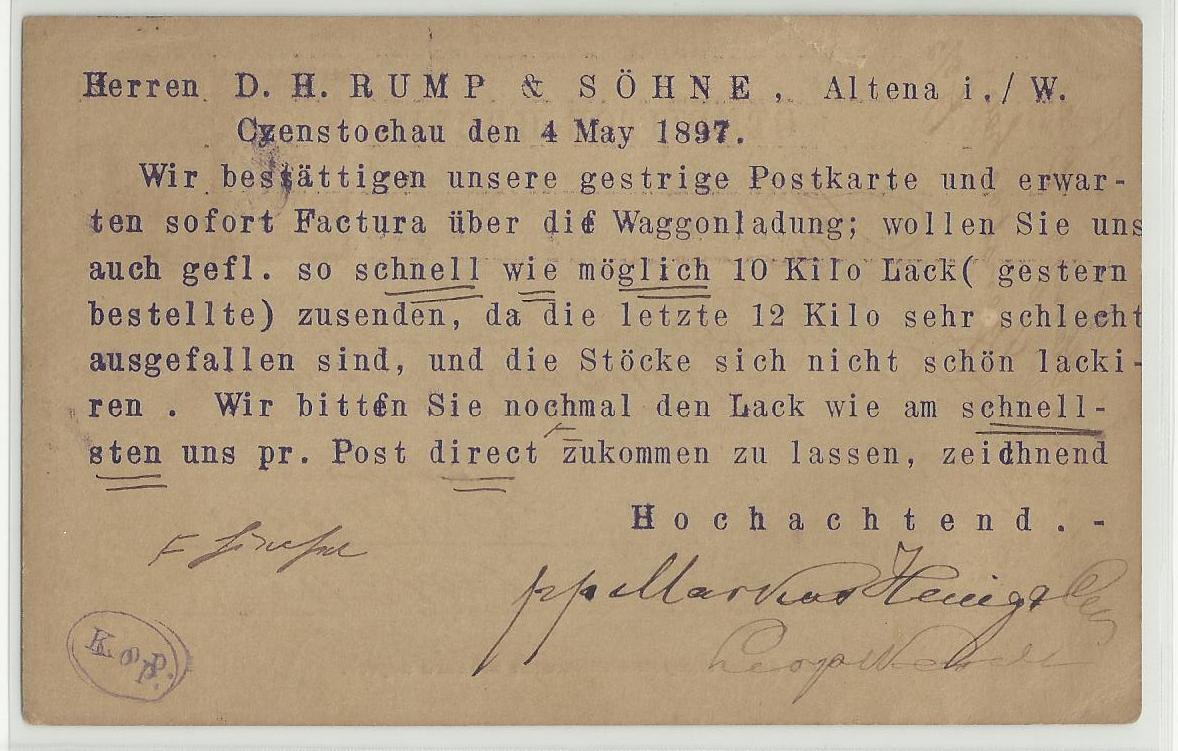 Herren D. H. RUMP & SÖHNE, Altena i./W.
Czenstochau den 4 May 1897.
Wir bestättigen unsere gestrige Postkarte und erwar-
ten sofort Factura über die Waggonladung; wollen Sie uns
auch gefl. so schnell wie möglich 10 Kilo Lack( gestern
bestellte) zusenden, da die letzte 12 Kilo sehr schlecht
ausgefallen sind, und die Stöcke sich nicht schön lacki-
ren . Wir bitten Sie nochmal den Lack wie am schnell-
sten uns pr. Post direct zukommen zu lassen, zeichnend
Hochachtend.-
pp Markus Henig
Kop.